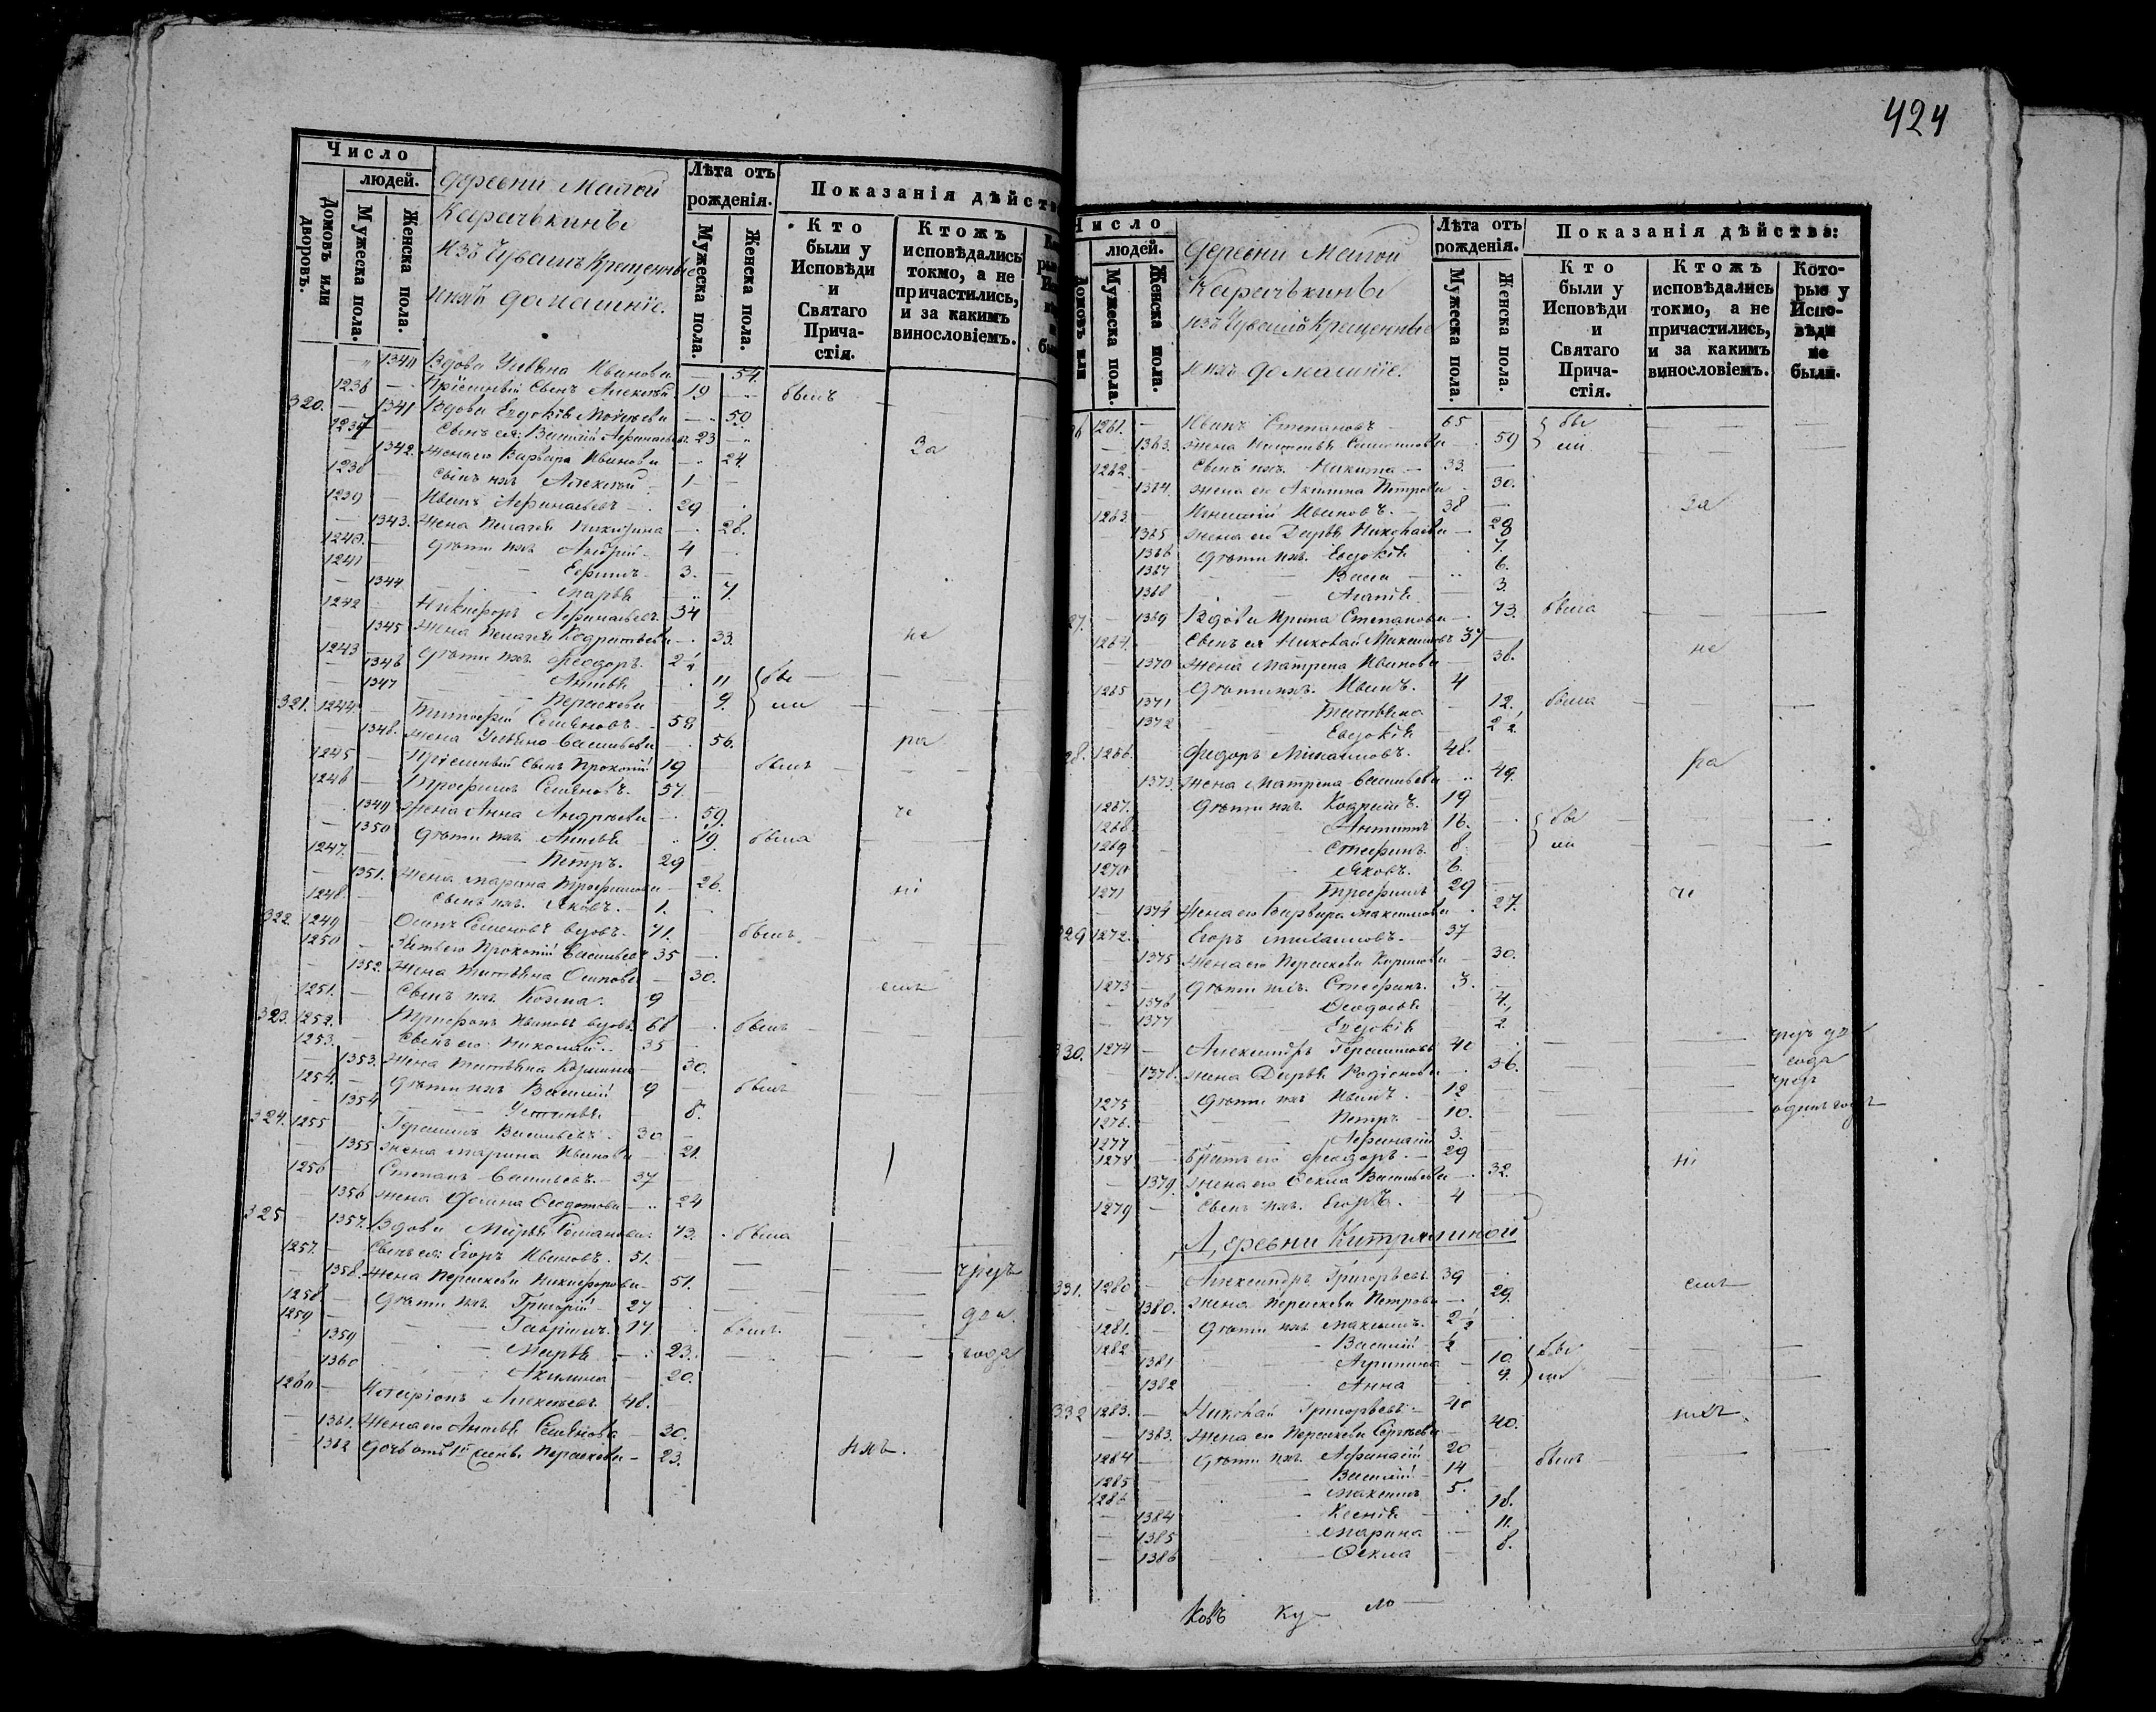 Число
людей.
Домовъ или дворовъ.
Мужеска пола.
Женска пола.
Деревни Малой
Карачькины
Изъ Чувашъ Крещенные
и ихъ домашніе.
Лѣта отъ
рожденія.
Мужеска пола.
Женска пола.
Показанія дѣйств
Кто
были у
Исповѣди
и
Святаго
Прича-
стія.
Ктожъ
исповѣдались
токмо, а не
причастились,
и за какимъ
винословіемъ.
1340 Вдова Ульяна Иванова — 54.
1236 — Пріемный Сынъ Алексѣй 19 — былъ
320. — 1341 Вдова Евдокія Моисеева — 50.
1237 — Сынъ ея: Василій Афанасьевъ 23 —
— 1342. Жена его Варвара Иванова — 24. За
1238 — Сынъ ихъ Алексѣй 1 —
1239 — Иванъ Афанасьевъ — 29
— 1343. Жена Пелагея — 28.
1240. — Дѣти ихъ Андрей — 4 —
1241 — Ефимъ — 3. —
— 1344 — Марья — 7.
1242 — Никифоръ Афанасьевъ 34
— 1345 Жена Пелагея Кодратьева — 33. не
1243 — Дѣти ихъ Феодоръ. 2½ —
— 1346 Анисья — 11 бы
— 1347 — Параскева 9. ли
321. 1244 — Тимофей Семеновъ — 58
— 1348. Жена Ульяна Васильева — 56. ра
1245 — Пріемный Сынъ Прокопій 19 былъ
1246 — Трофимъ Семеновъ. 57. —
— 1349 Жена Анна Андреева — 59. че
— 1350 Дѣти ихъ Анисья 19. была
1247. — Петръ. 29
— 1351. Жена Марина Трофимова — 26.
1248. — Сынъ ихъ Яковъ. — 1. — ні
322. 1249 — Осипъ Семеновъ вдовъ. 71. — былъ
1250 — Зять его Прокопій Васильевъ 35 —
— 1352. Жена Татьяна Осипова — 30.
1251. — Сынъ ихъ Козма. 9 емъ
323. 1252. — Трифонъ Ивановъ вдовъ. 68 — былъ
1253. — Сынъ его Николай — 35 —
— 1353. Жена Татьяна Козмина — 30.
1254. — Дѣти ихъ Василій 9 — былъ
— 1354 — Устинья — 8.
324. 1255 Герасимъ Васильевъ. 30 —
— 1355 Жена Марина Иванова — 21.
1256 — Степанъ Васильевъ. — 37 —
— 1356 Жена Федотова — 24
325 — 1357. Вдова Марья Романова. 73. была
1257. — Сынъ ея: Егоръ Ивановъ. 51. —
— 1358. Жена Параскева Никифорова — 51. чрезъ
1258 — Дѣти ихъ Григорій — 27 два
1259 — Гаврилъ. 17. былъ
— 1359 — Марья — 23. года
1360 Акилина — 20.
1260 — Алексѣевъ 48.
— 1361. Жена его Анисья Семенова — 30.
— 1362 Дочь отъ 1й жены Параскева — 23. имъ.
424
Число
людей.
Домовъ или
Мужеска пола.
Женска пола.
Деревни Малой
Карачькины
изъ Чувашъ Крещенные
и ихъ домашніе.
Лѣта отъ
рожденія.
Мужеска пола.
Женска пола.
Показанія дѣйства:
Кто
были у
Исповѣди
и
Святаго
Прича-
стія.
Ктожъ
исповѣдались
токмо, а не
причастились,
и за какимъ
винословіемъ.
Кото-
рые у
Испо-
вѣди
не
были.
26 1261. — Иванъ Степановъ — 65 — бы
— 1363. Жена Семенова — 59 ли
1262. — Сынъ ихъ Никита — 33. —
— 1364. Жена его Акилина Петрова 30.
1263 — Ивановъ. — 38 — За
— 1365 Жена его Дарья Николаева — 28
1366 Дѣти ихъ Евдокія 7.
1367 — Васса — 6.
1368 — Агапія — 3.
27. — 1369 Вдова Ирина Степанова — 73. была
1264. — Сынъ ея Николай Максимовъ 37 — не
— 1370 Жена Матрена Иванова — 38.
1265 Дѣти ихъ Иванъ. 4
1371 Татьяна — 12. была
1372 — Евдокія — 2½
28. 1266. Федоръ Михаиловъ. 48. — ра
1373. Жена Матрена Васильева — 49.
1267. Дѣти ихъ Кодратъ. 19
1268 Антипъ 16. — бы
1269 — Стефанъ. 8 — ли
1270 Яковъ. 6.
1271 — Трофимъ 29 че
— 1374 Жена его Варвара Максимова — 27.
329 1272. Егоръ Михаиловъ. — 37
— 1375 Жена его Параскева — 30.
1273 — Дѣти ихъ Стефанъ. 3.
— 1376 — Феодосья 4.
— 1377 — Евдокія 2.
330. 1274 — Александръ Герасимовъ 40 чрезъ два
— 1378. Жена Дарья Родіонова — 36. года
1275 Дѣти ихъ Иванъ. 12 чрезъ
1276. — Петръ — 10. одинъ годъ
1277 — Афанасій 3.
1278 — Братъ его Феодоръ. — 29 ні
— 1379. Жена его Фекла Васильева — 32.
1279 — Сынъ ихъ Егоръ. 4 —
Деревни Китрялиной
331. 1280 — Александръ Григорьевъ 39 емъ
— 1380. Жена Параскева Петрова — 29.
1281. — Дѣти ихъ Максимъ. 2½
1282 — Василій — ½
1381 — Агрипина — 10. бы
— 1382 — Анна 9. ли
332 1283. — Николай Григорьевъ — 40 нихъ.
— 1383. Жена его Параскева Сергѣева 40.
1284 — Дѣти ихъ Афанасій 20 былъ
1285 — Василій — 14
1286 — Максимъ 5.
— 1384 — Ксенія — 18.
— 1385 — Марина — 11.
— 1386 — Фекла — 8.
ковъ Ку- ло-